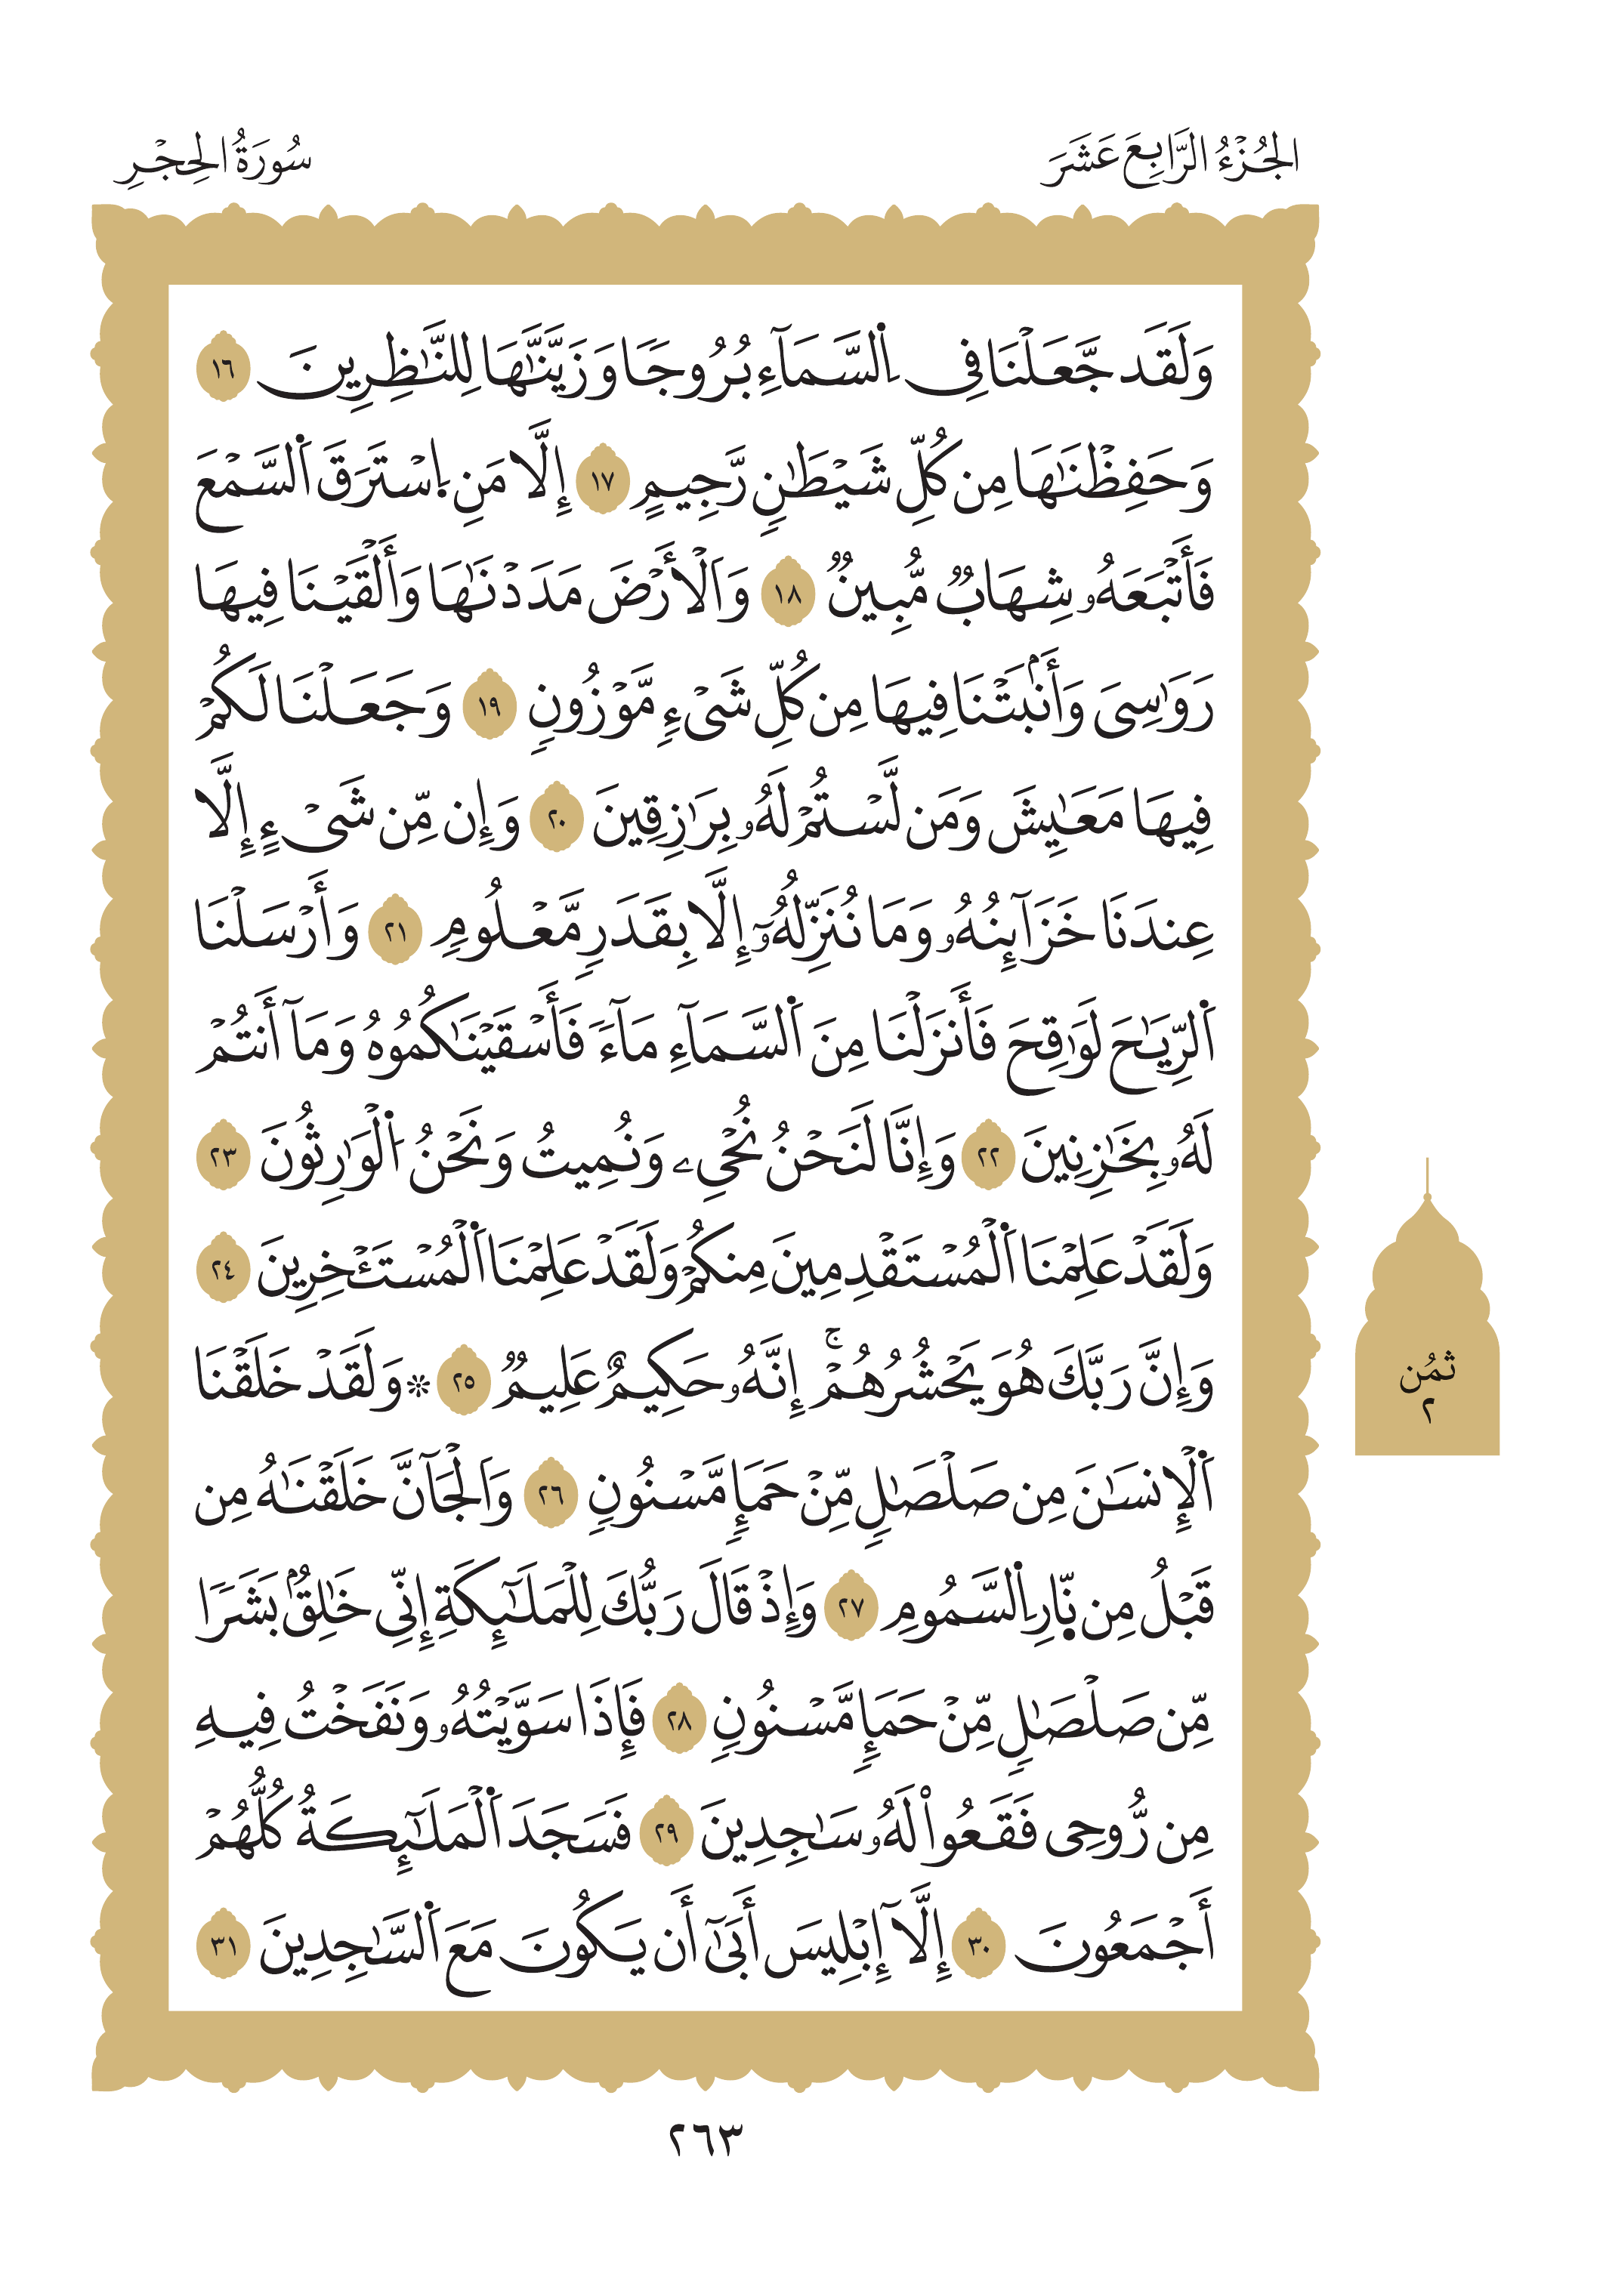 الجُزْءُ الرَّابِعَ عَشَرَ
سُورَةُ الحِجْرِ
وَلَقَد جَّعَلْنَا فِى اِ۬لسَّمَآءِ بُرُوجًا وَزَيَّنَّٰهَا لِلنَّٰظِرِينَ ١٦
وَحَفِظْنَٰهَا مِن كُلِّ شَيْطَٰنٍ رَّجِيمٍ ١٧ إِلَّا مَنِ اِ۪سْتَرَقَ اَ۬لسَّمْعَ
فَأَتْبَعَهُۥ شِهَابٌ مُّبِينٌ ١٨ وَالْأَرْضَ مَدَدْنَٰهَا وَأَلْقَيْنَا فِيهَا
رَوَٰسِىَ وَأَنۢبَتْنَا فِيهَا مِن كُلِّ شَىْءٍ مَّوْزُونٍ ١٩ وَجَعَلْنَا لَكُمْ
فِيهَا مَعَٰيِشَ وَمَن لَّسْتُمْ لَهُۥ بِرَٰزِقِينَ ٢٠ وَإِن مِّن شَىْءٍ إِلَّا
عِندَنَا خَزَآئِنُهُۥ وَمَا نُنَزِّلُهُۥٓ إِلَّا بِقَدَرٍ مَّعْلُومٍ ٢١ وَأَرْسَلْنَا
اَ۬لرِّيَٰحَ لَوَٰقِحَ فَأَنزَلْنَا مِنَ اَ۬لسَّمَآءِ مَآءً فَأَسْقَيْنَٰكُمُوهُ وَمَآ أَنتُمْ
لَهُۥ بِخَٰزِنِينَ ٢٢ وَإِنَّا لَنَحْنُ نُحْىِۦ وَنُمِيتُ وَنَحْنُ اَ۬لْوَٰرِثُونَ ٢٣
وَلَقَدْ عَلِمْنَا اَ۬لْمُسْتَقْدِمِينَ مِنكُمْ وَلَقَدْ عَلِمْنَا اَ۬لْمُسْتَـْٔخِرِينَ ٢٤
وَإِنَّ رَبَّكَ هُوَ يَحْشُرُهُمْۚ إِنَّهُۥ حَكِيمٌ عَلِيمٌ ٢٥ ۞ وَلَقَدْ خَلَقْنَا
اَ۬لْإِنسَٰنَ مِن صَلْصَٰلٍ مِّنْ حَمَإٍ مَّسْنُونٍ ٢٦ وَالْجَآنَّ خَلَقْنَٰهُ مِن
قَبْلُ مِن نّ۪ارِ اِ۬لسَّمُومِ ٢٧ وَإِذْ قَالَ رَبُّكَ لِلْمَلَٰٓئِكَةِ إِنِّى خَٰلِقٌۢ بَشَرًا
مِّن صَلْصَٰلٍ مِّنْ حَمَإٍ مَّسْنُونٍ ٢٨ فَإِذَا سَوَّيْتُهُۥ وَنَفَخْتُ فِيهِ
مِن رُّوحِى فَقَعُوا۟ لَهُۥ سَٰجِدِينَ ٢٩ فَسَجَدَ اَ۬لْمَلَٰٓئِكَةُ كُلُّهُمْ
أَجْمَعُونَ ٣٠ إِلَّآ إِبْلِيسَ أَبَىٰٓ أَن يَكُونَ مَعَ اَ۬لسَّٰجِدِينَ ٣١
ثُمُن
٢
٢٦٣